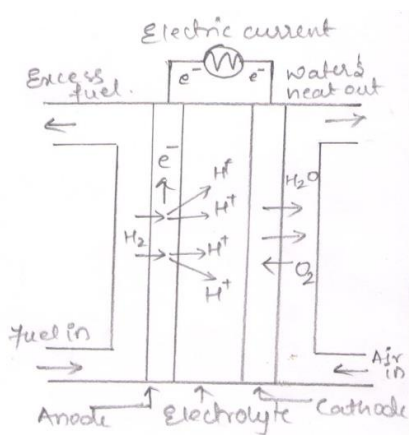 Electric current
e⁻ e⁻
Excess fuel.
Water & heat out
e⁻
H⁺
H⁺
H₂
H⁺
H⁺
H₂O
O₂
Fuel in
Air in
Anode Electrolyte Cathode